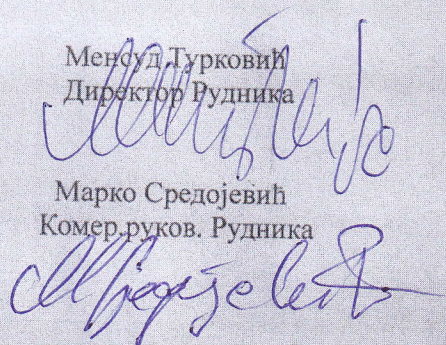 Менсуд Турковић
Директор Рудника
Марко Средојевић
Комер.руков. Рудника